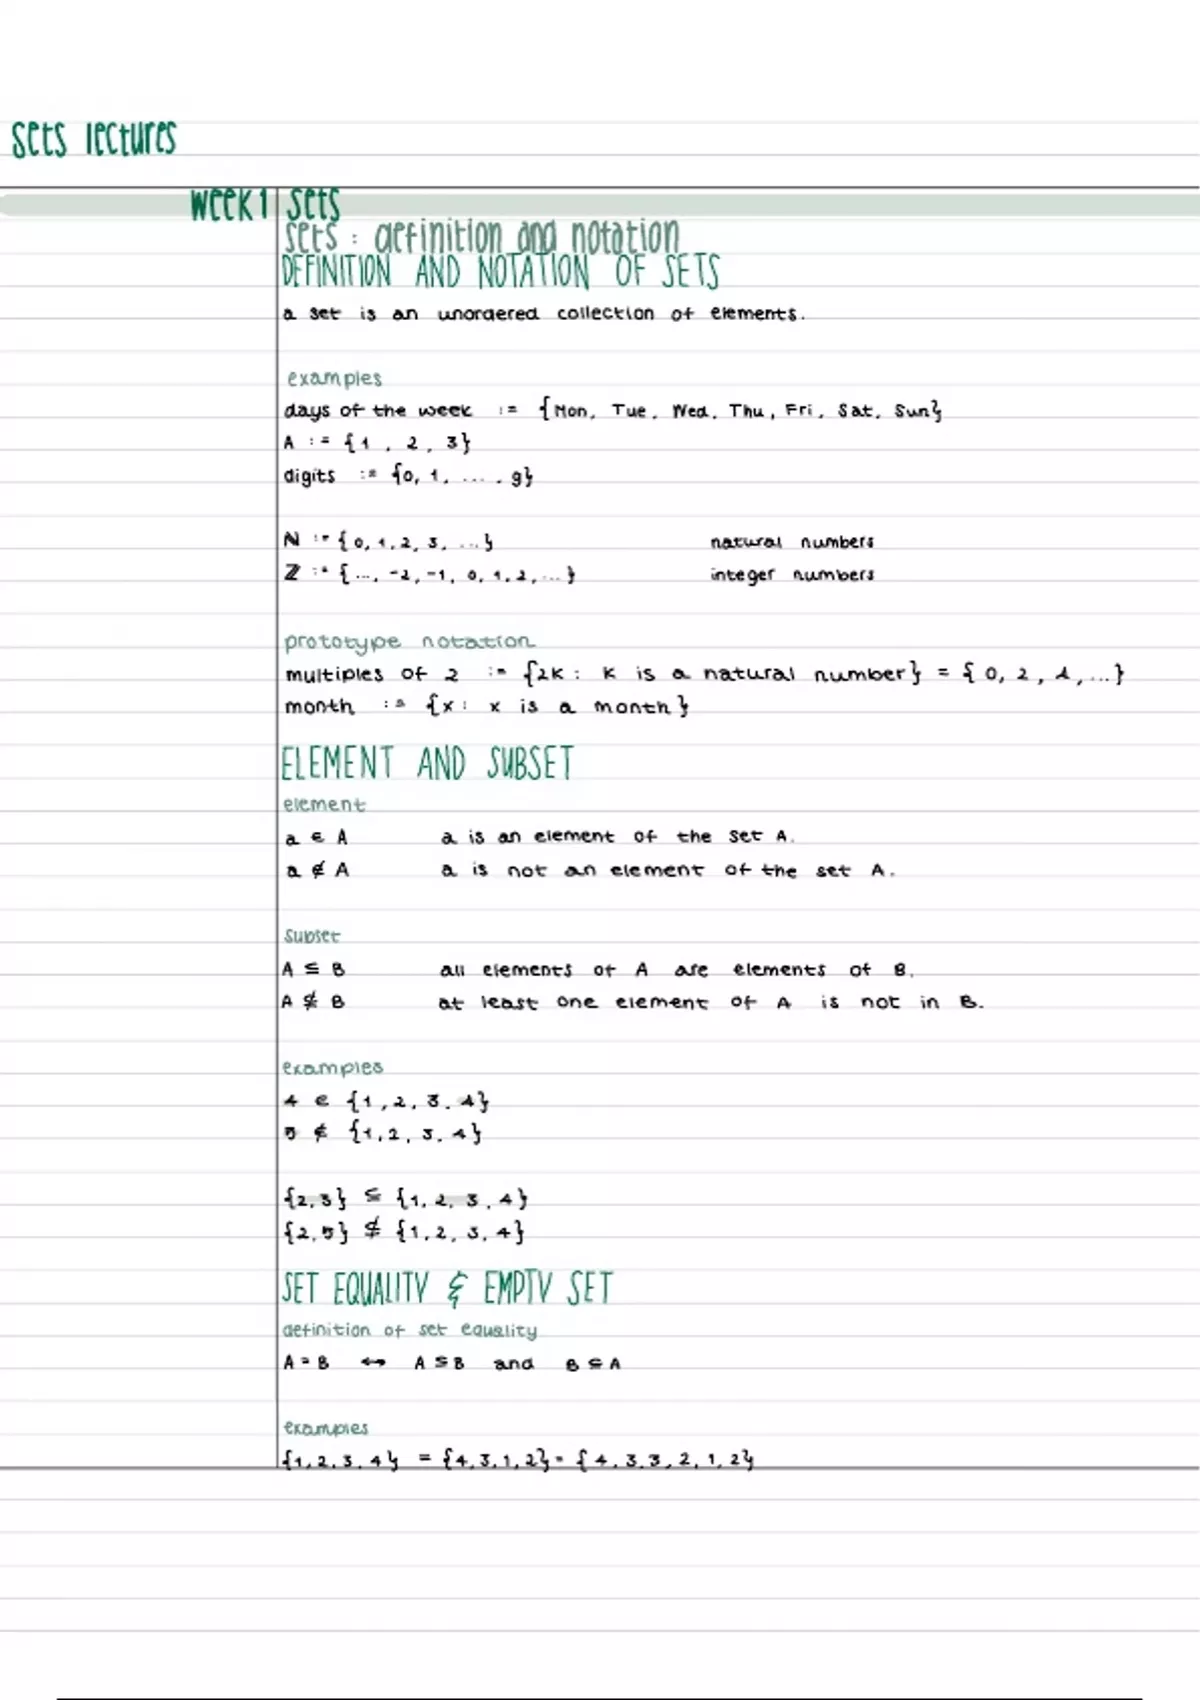 Sets lectures
Week 1 Sets
Sets : definition and notation
DEFINITION AND NOTATION OF SETS
a set is an unordered collection of elements.
examples
days of the week := {Mon, Tue, Wed, Thu, Fri, Sat, Sun}
A := {1, 2, 3}
digits := {0, 1, ..., 9}
ℕ := {0, 1, 2, 3, ...} natural numbers
ℤ := {..., -2, -1, 0, 1, 2, ...} integer numbers
prototype notation
multiples of 2 := {2k : k is a natural number} = {0, 2, 4, ...}
month := {x : x is a month}
ELEMENT AND SUBSET
element
a ∈ A a is an element of the set A.
a ∉ A a is not an element of the set A.
subset
A ⊆ B all elements of A are elements of B.
A ⊈ B at least one element of A is not in B.
examples
4 ∈ {1, 2, 3, 4}
5 ∉ {1, 2, 3, 4}
{2, 3} ⊆ {1, 2, 3, 4}
{2, 5} ⊈ {1, 2, 3, 4}
SET EQUALITY & EMPTY SET
definition of set equality
A = B ↔ A ⊆ B and B ⊆ A
examples
{1, 2, 3, 4} = {4, 3, 1, 2} = {4, 3, 3, 2, 1, 2}